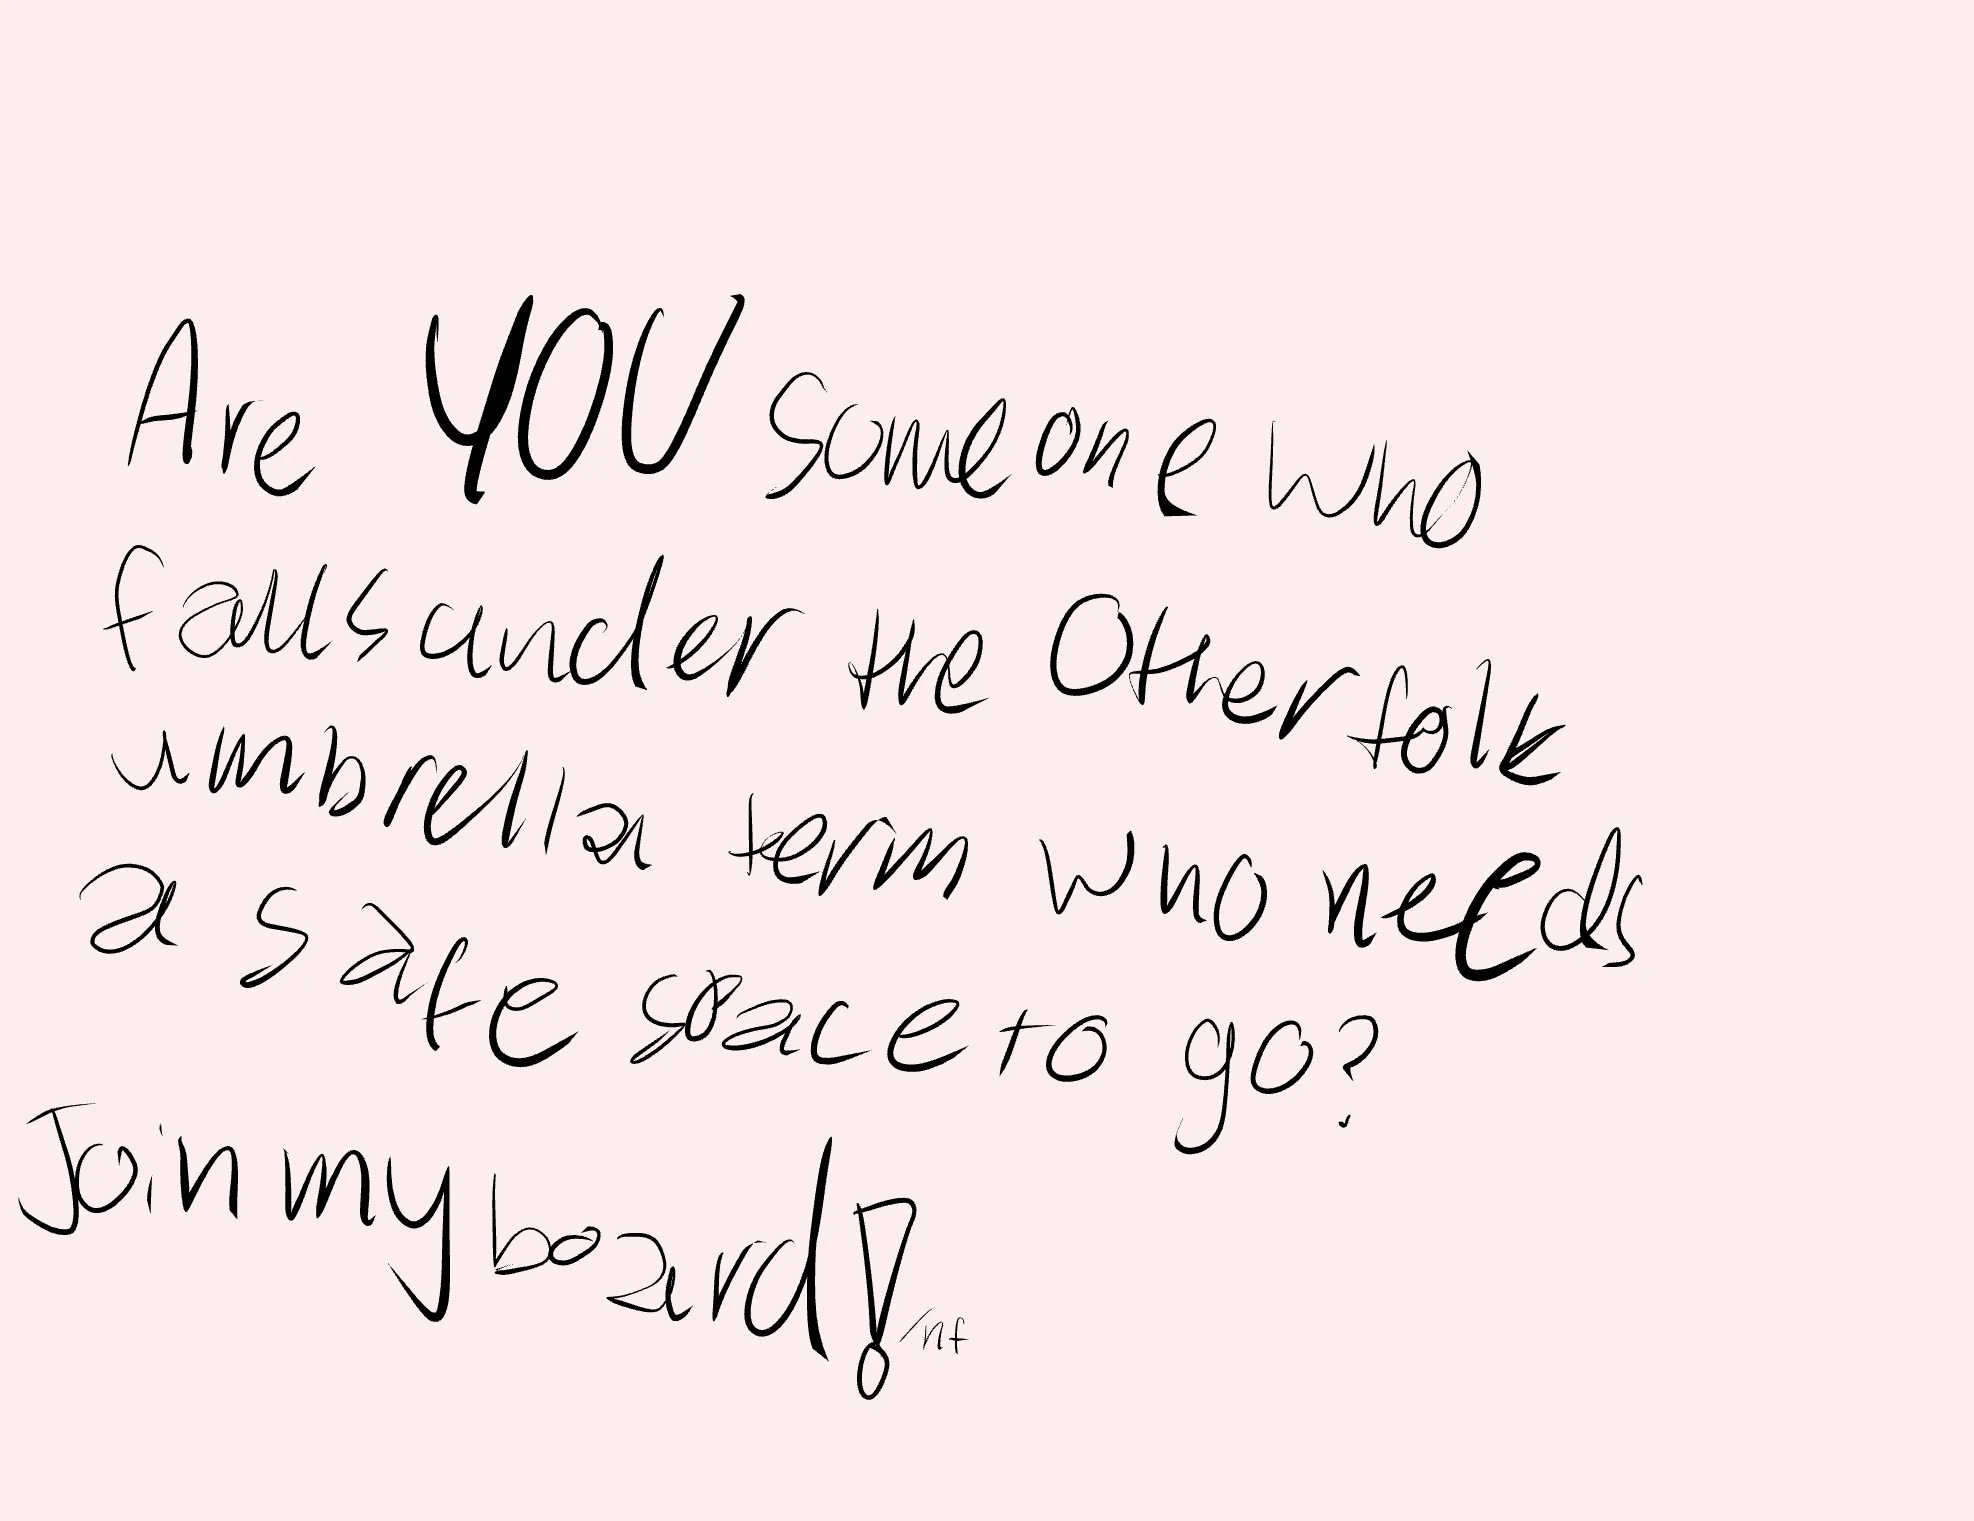 Are YOU someone who
falls under the Otherfolk
umbrella term who needs
a safe space to go?
Join my board! /nf